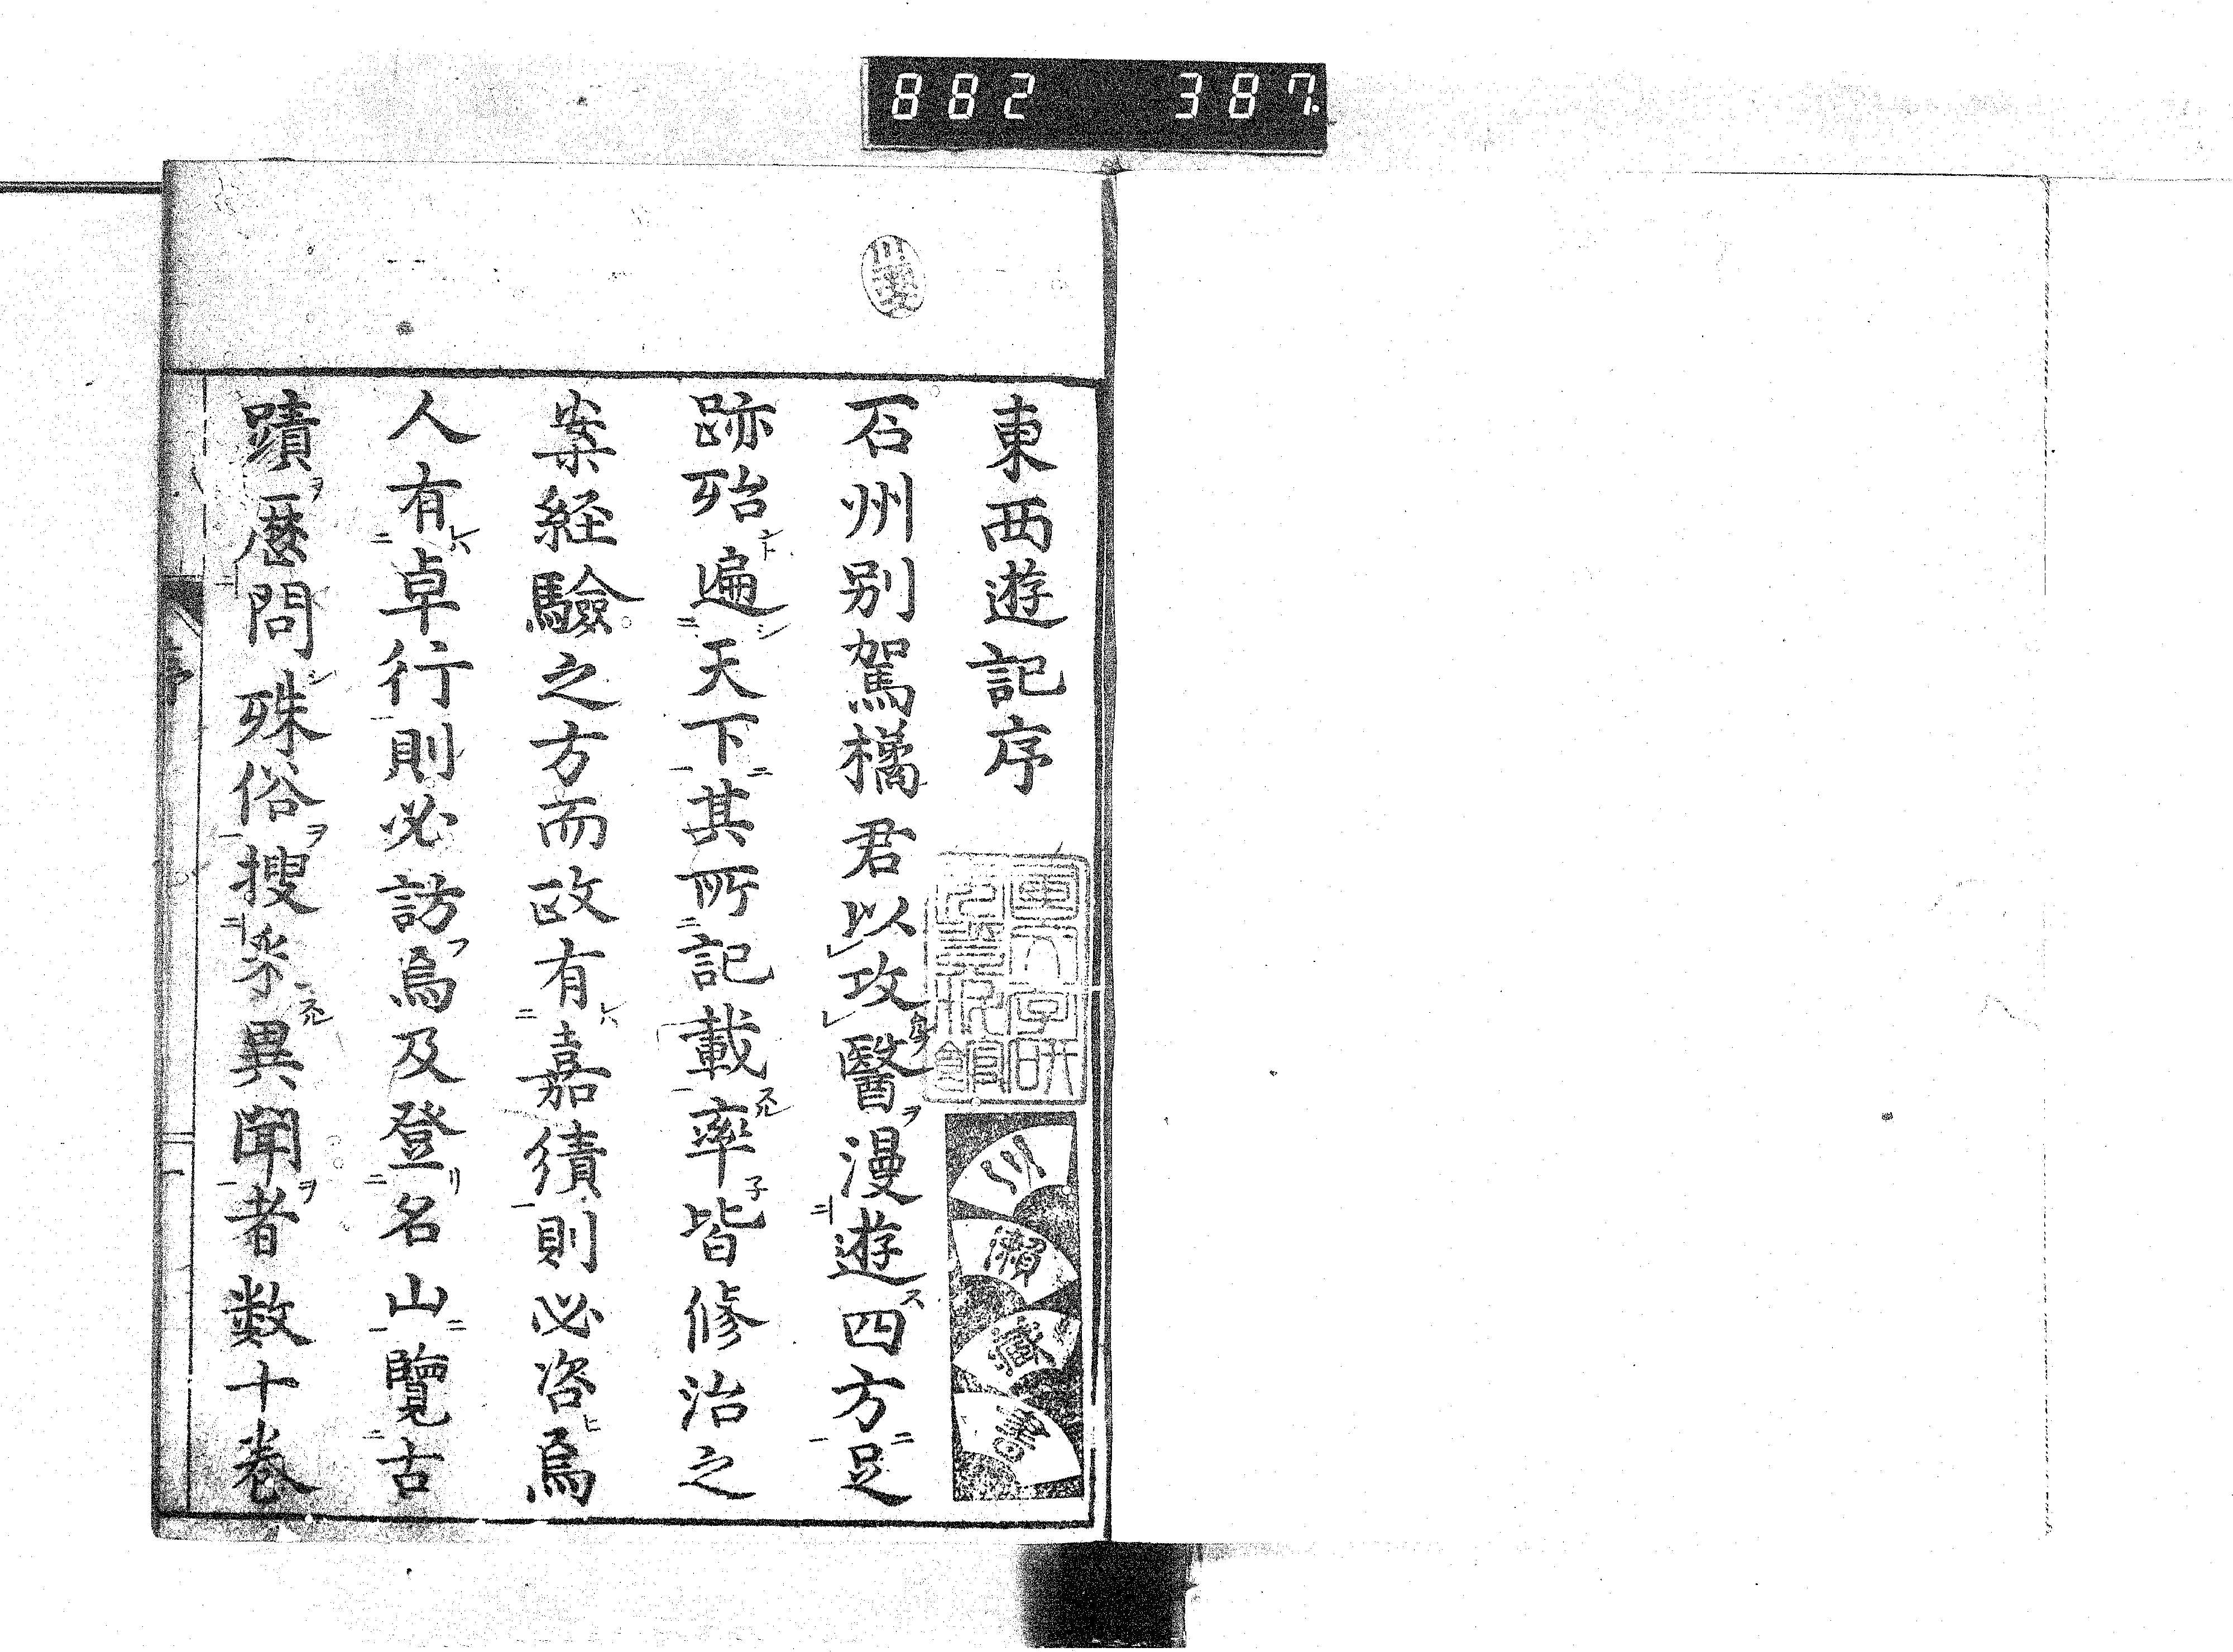 882 387.
東西遊記序
石州別駕橘君以攻醫漫遊四方足
跡殆遍天下其所記載率皆修治之
案経験之方而攻有嘉績則必咨焉
人有卓行則必訪焉及登名山覽古
蹟歴問殊俗搜采異聞者数十巻
川瀨藏書
序
一